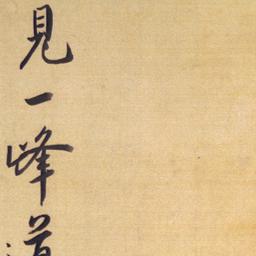 見一峰道